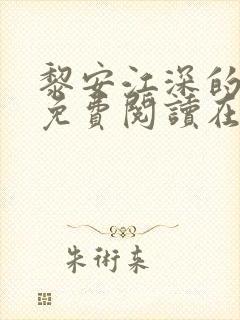 黎安江深的
免費閱讀在
朱術夌